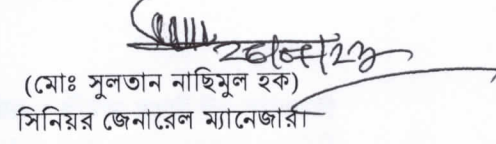 (মোঃ সুলতান নাছিমুল হক)
সিনিয়র জেনারেল ম্যানেজার